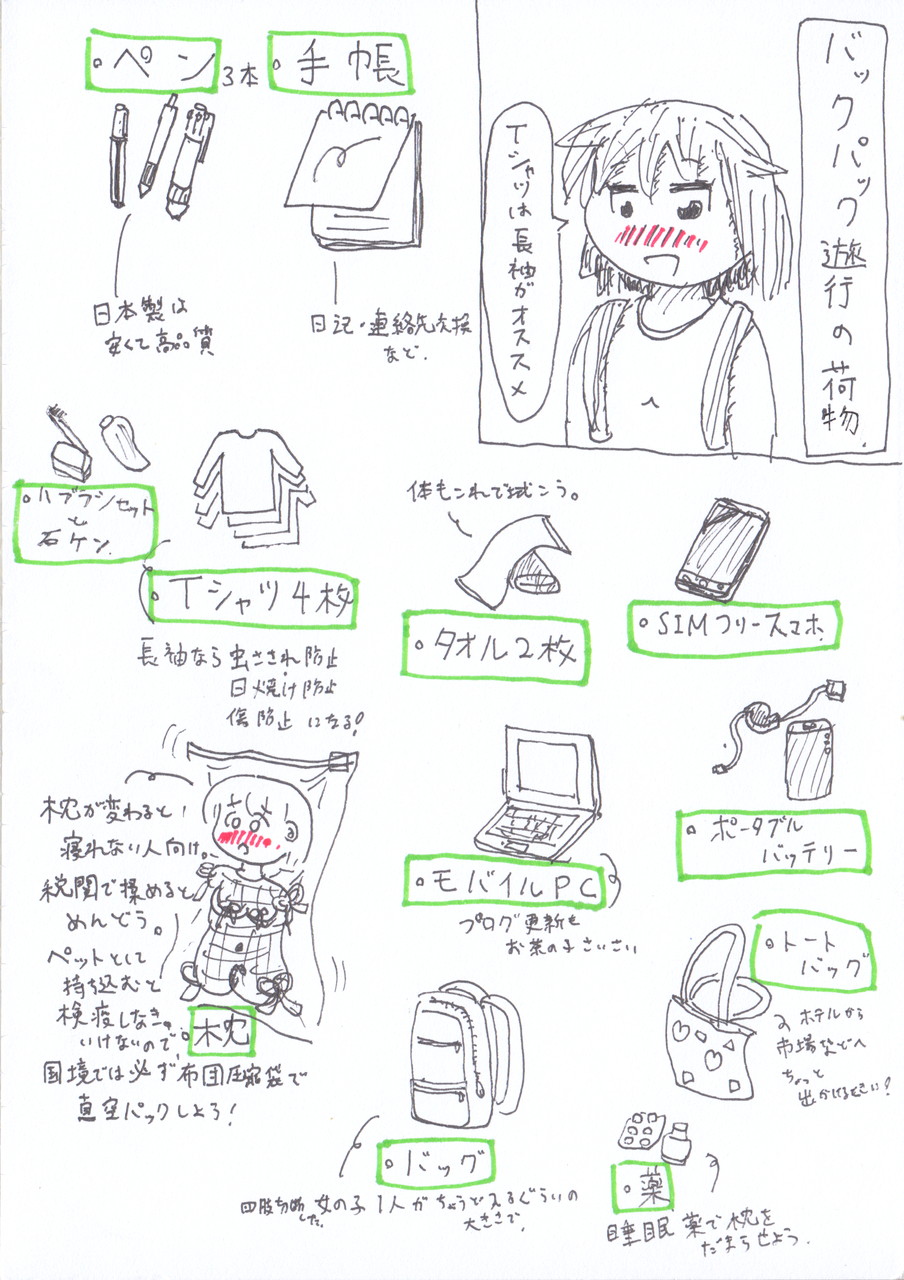 バックパック遊行の荷物
Tシャツは長袖がオススメ
・ペン 3本
・手帳
日本製は
安くて高品質
日記・連絡先交換
など.
・ハブラシセット
と
石ケン.
・Tシャツ4枚
長袖なら虫さされ防止
日焼け防止
傷防止になる!
体もこれで拭こう。
・タオル2枚
・SIMフリースマホ
・ポータブル
バッテリー
・モバイルPC
ブログ更新も
お茶の子さいさい
・トート
バッグ
ホテルから
市場などへ
ちょっと
出かけるときに!
枕が変わると
寝れない人向け。
税関で揉めると
めんどう。
ペットとして
持ち込むと
検疫しなき
いけないので、
・枕
国境では必ず布団圧縮袋で
真空パックしよう!
・バッグ
四肢切断した女の子1人がちょうど入るぐらいの
大きさで.
・薬
睡眠薬で枕を
だまらせよう.